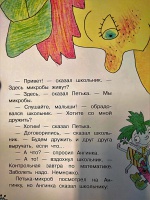 — Привет! — сказал школьник. —
Здесь микробы живут?
— Здесь, — сказал Петька. — Мы
микробы.
— Слушайте, малыши! — обрадо-
вался школьник. — Хотите со мной
дружить?
— Хотим! — сказал Петька.
— Договорились, — сказал школь-
ник. — Будем дружить и друг друга
выручать, если что...
— А что? — спросил Ангинка.
— А то! — вздохнул школьник. —
Контрольная завтра по математике.
Заболеть надо. Немножко.
Петька-микроб посмотрел на Ан-
гинку, но Ангинка сказал школьнику: